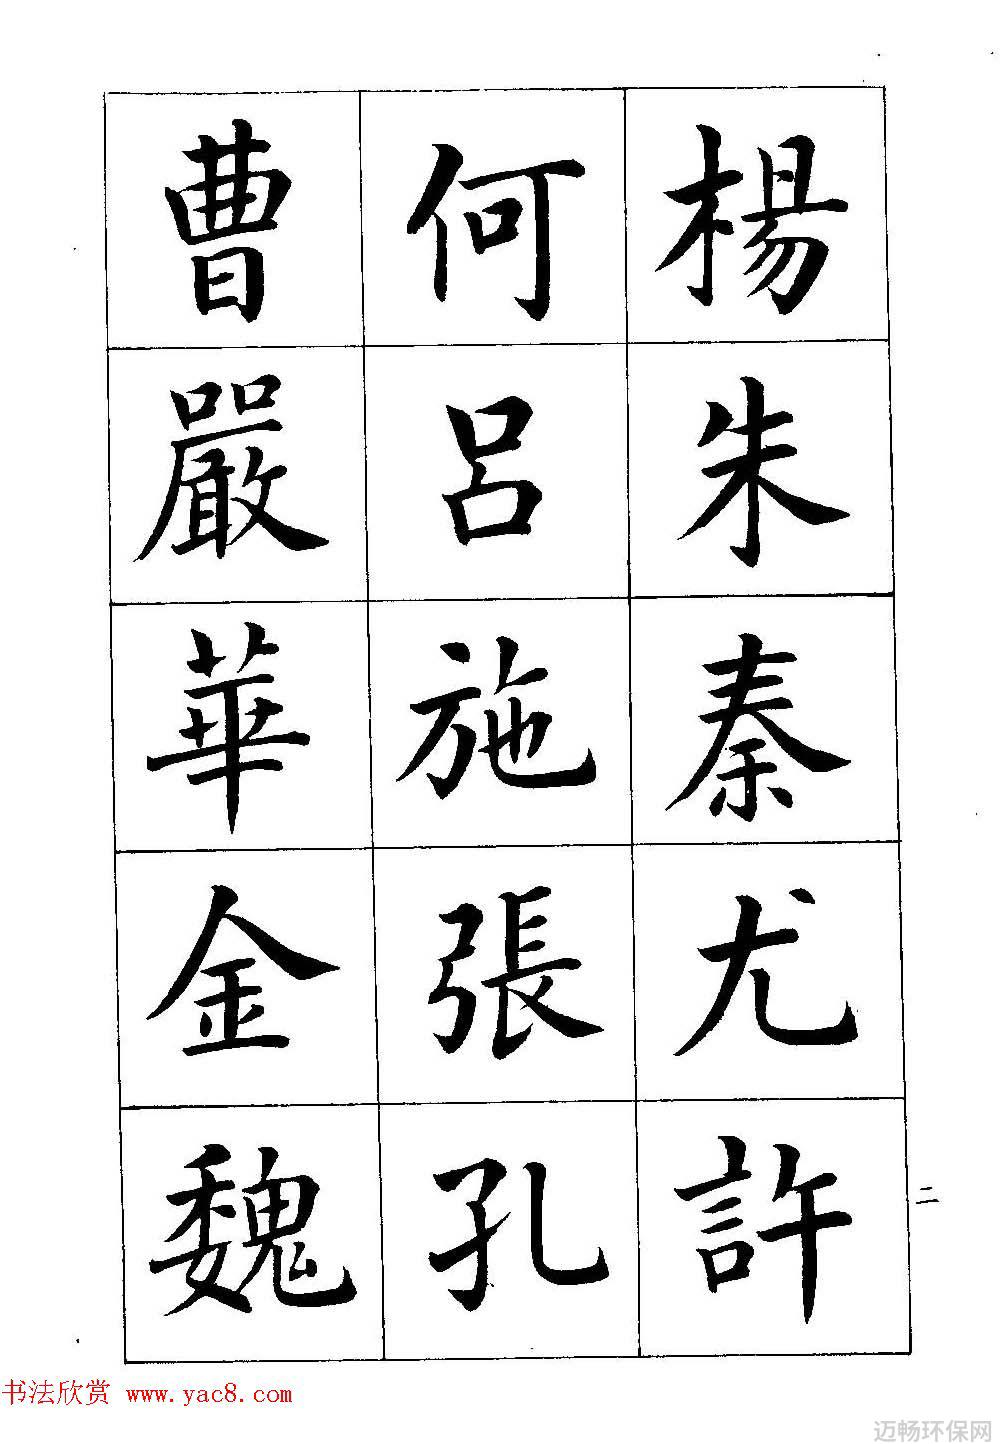 楊朱秦尤許
何呂施張孔
曹嚴華金魏
二
书法欣赏 www.yac8.com
迈畅环保网